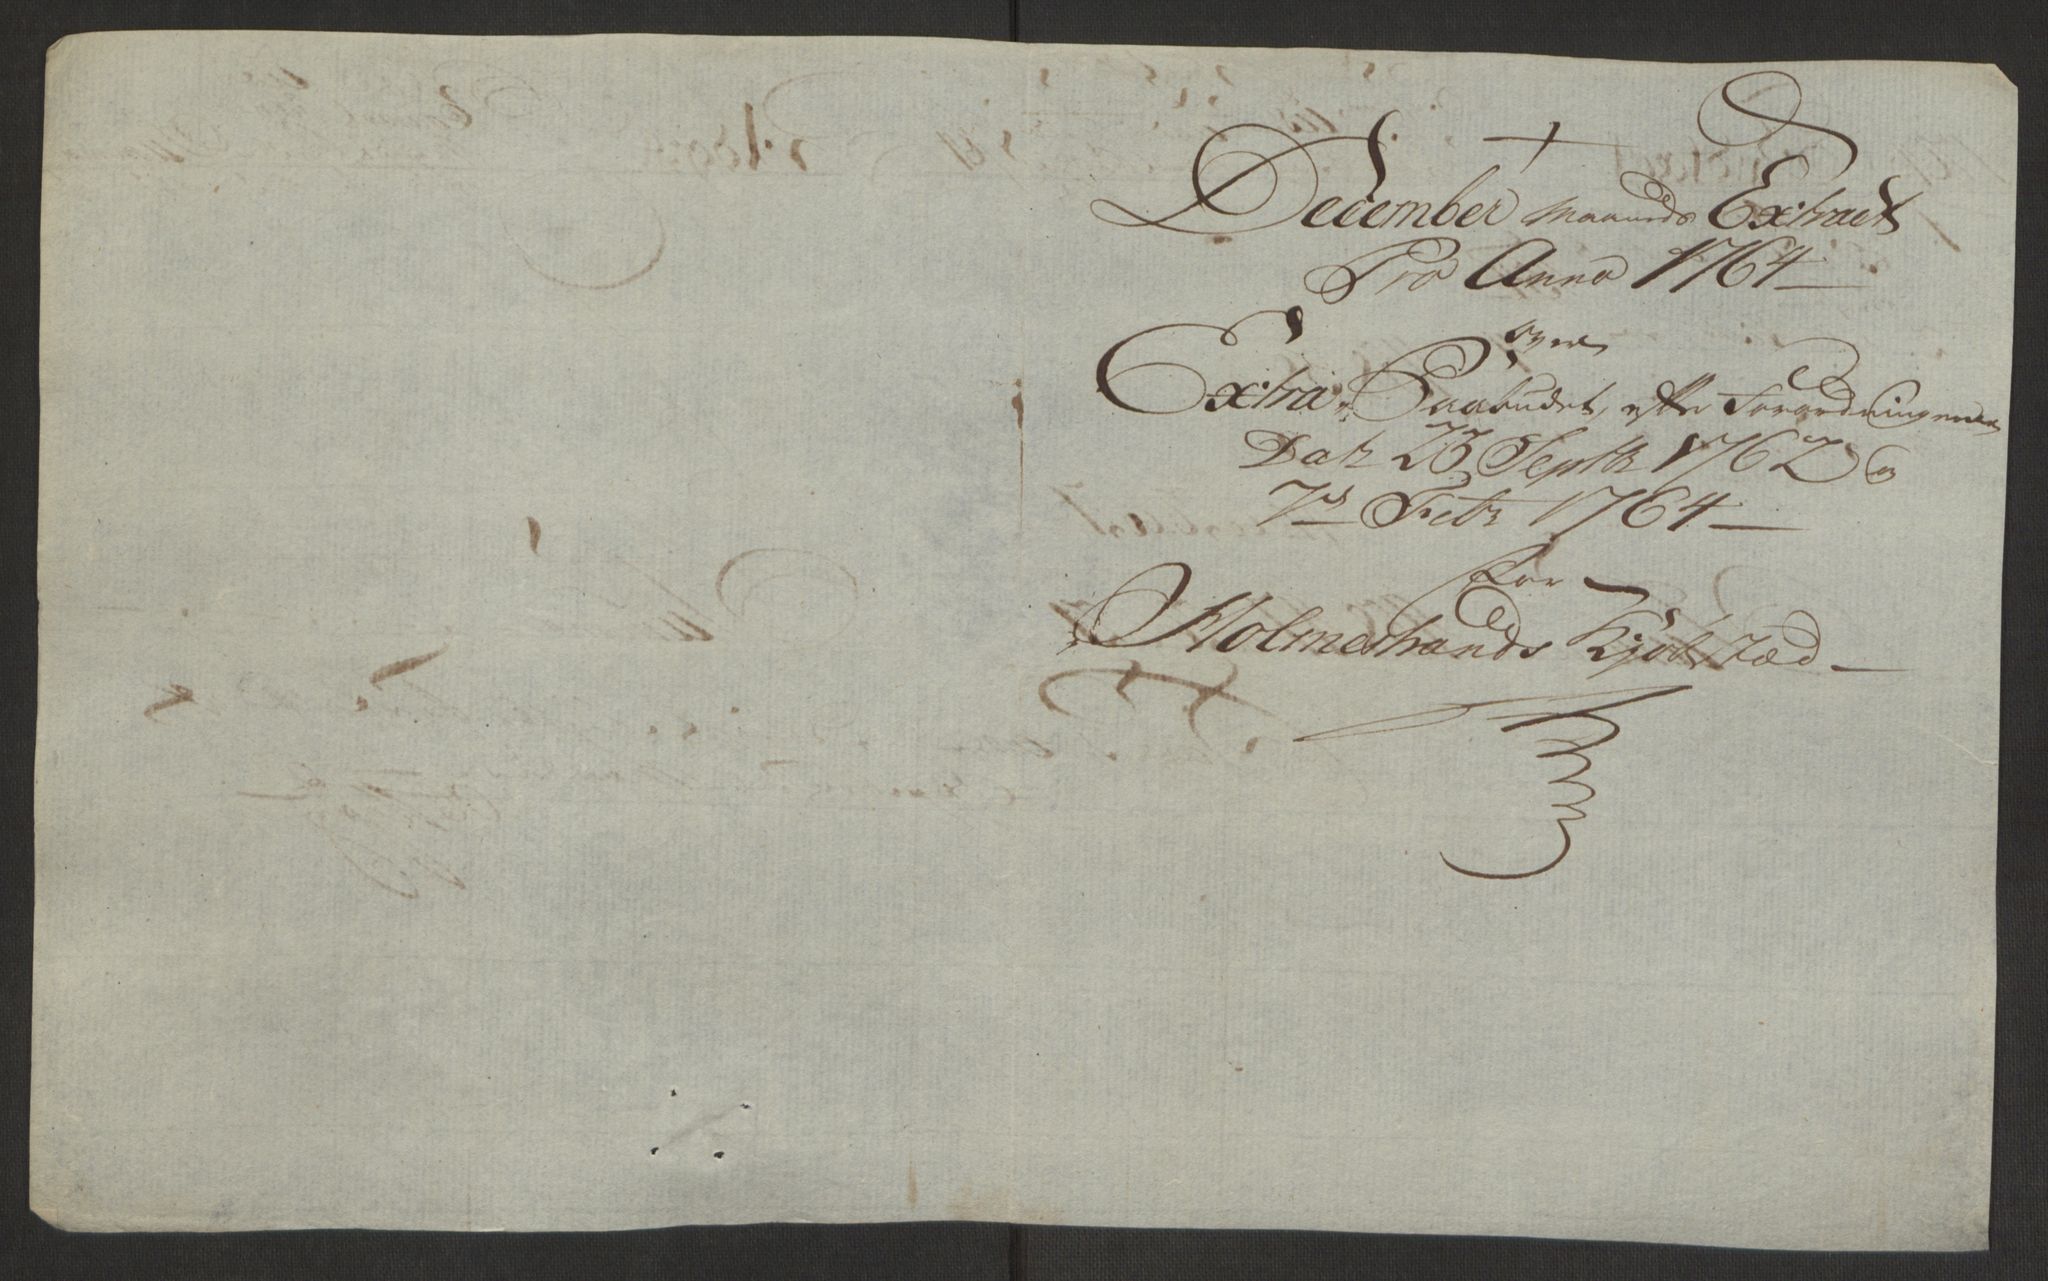 December Maaneds Extract
Pro Anno 1764
over
Extra Paabudet, efter Forordningerne
Dat: 23 Septbr 1762 og
7d Febr 1764
For
Holmestrands Kjöbstæd